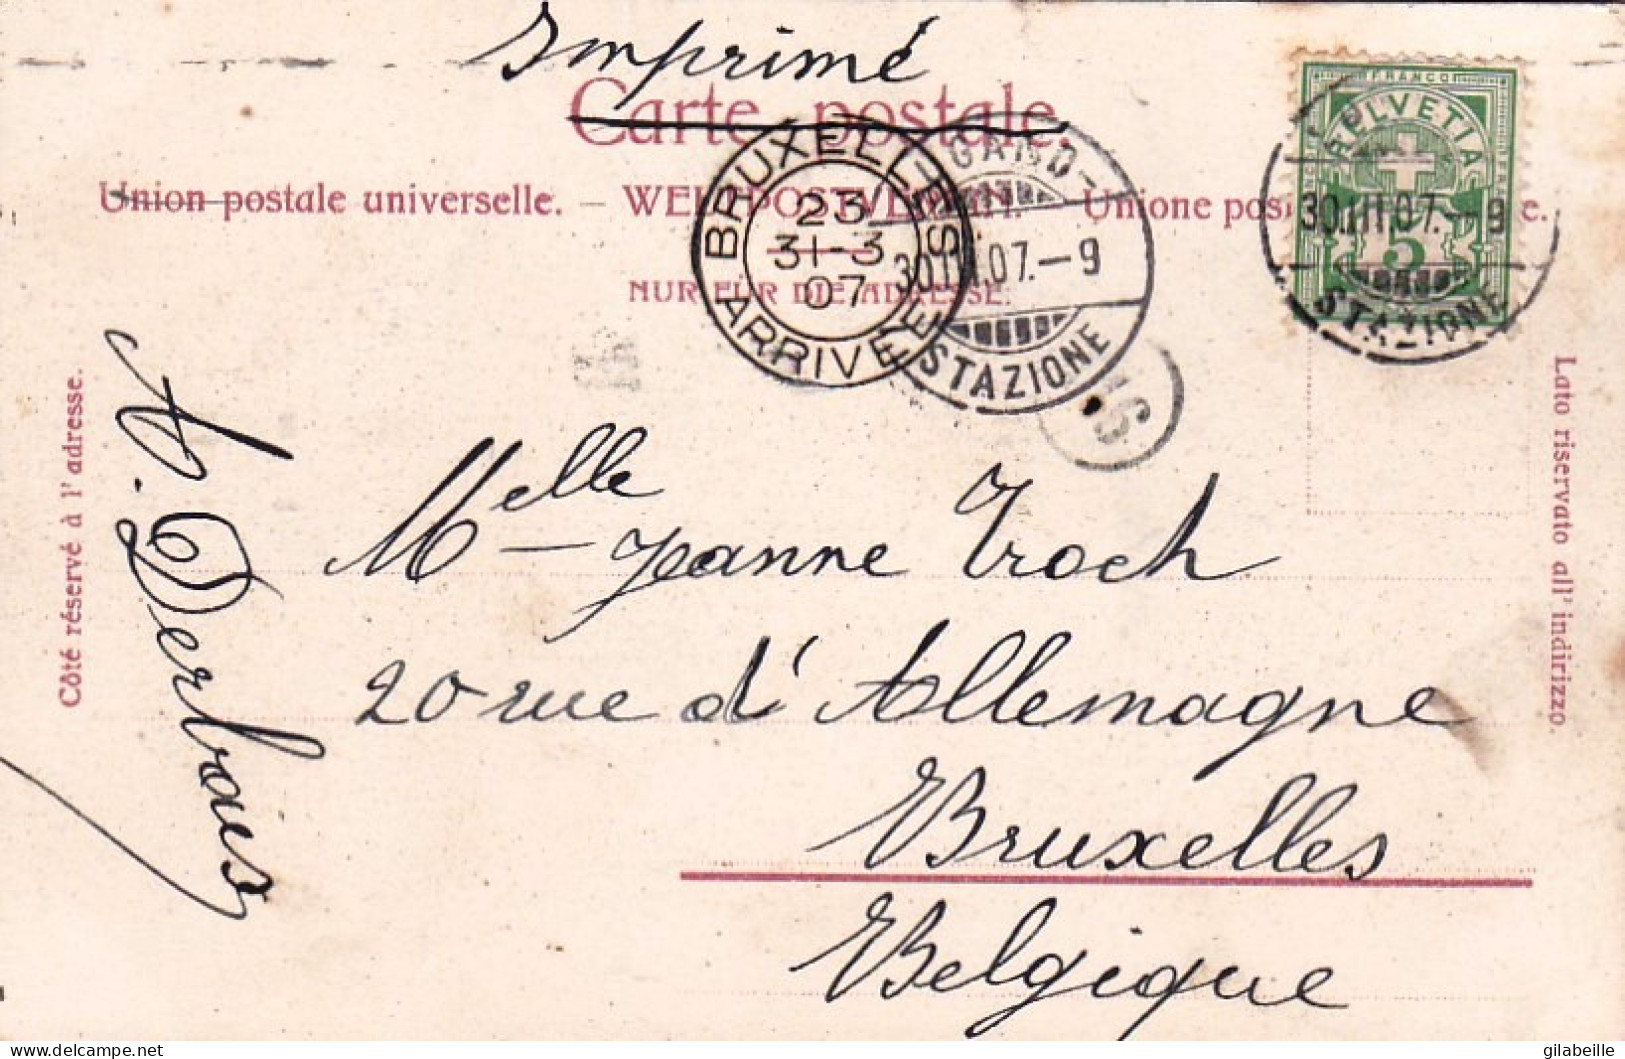 Imprimé
Carte postale.
Union postale universelle. — WELTPOSTVEREIN. — Unione postale
NUR FÜR DIE ADRESSE.
FRANCO
HELVETIA
5
30.III.07.-9
STAZIONE
BRUXELLES
23
31-3
07
ARRIVEE
30.III.07.-9
STAZIONE
Côté réservé à l'adresse.
Lato riservato all'indirizzo.
A. Derbaix
Melle Jeanne Troch
20 rue d'Allemagne
Bruxelles
Belgique
delcampe.net
gilabeille